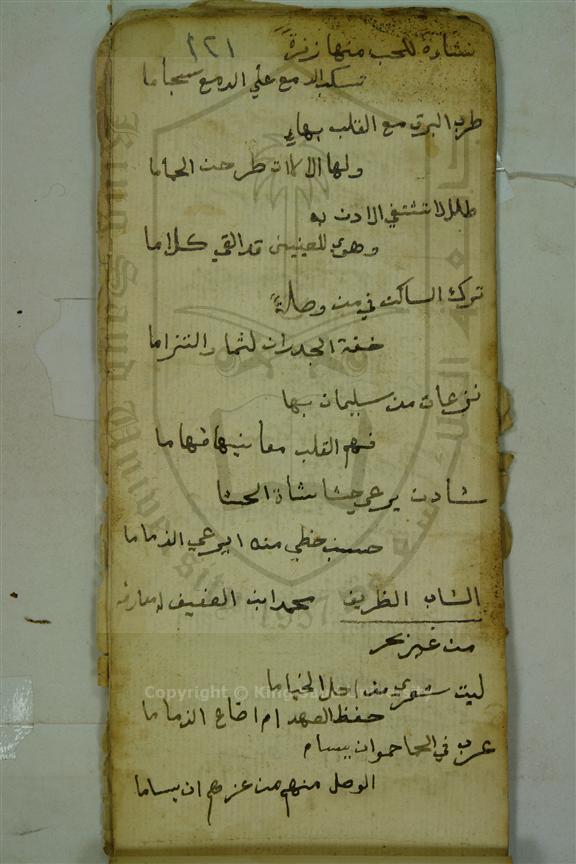 ١٢١
نشاءة للحب منها زفرة
تسكب الدمع علي الدمع سجاما
طرب البرق مع القلب بها
ولها الالات طرحن الحماما
طلل لا تشتفي الاذن به
وهوي للعينين قد القي كلاما
ترك الساكن في من وصله
ضمة الجدران لثما والتزاما
نزعات من سليمان بها
فهم القلب معانيها فهاما
شادن يرعي حشاشاة الحشا
حسب حظي منه ان يرعي الذماما
الشاب الظريف محمد ابن العفيف
من غير بحر
ليت شعري من احل الخياما
حفظ العهد ام اضاع الذماما
عرب في الحما حموا ان يسام
الوصل منهم من عزهم ان يساما
Copyright © King Saud University
King Saud University
1957